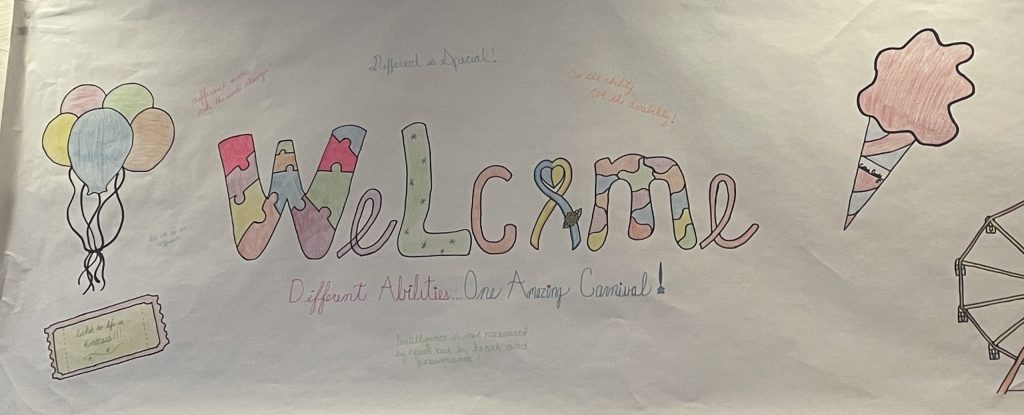 Different is Special!
different minds
make the world
See the ability
not the disability!
WeLcome
Cotton Candy
Different Abilities...One Amazing Carnival!
ticket to life is
Intelligence is not measured
by speed but by heart and
perseverance!